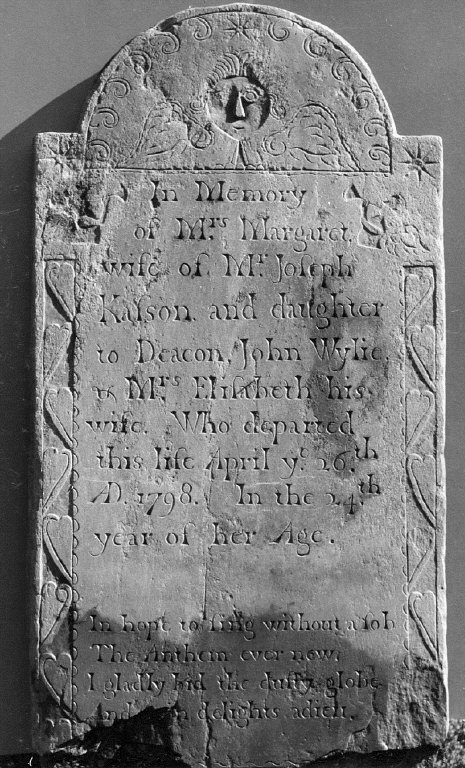 In Memory
of Mrs Margaret,
wife of Mr Joſeph
Kaſson, and daughter
to Deacon, John Wylie,
& Mrs Eliſabeth his
wife. Who departed
this life April ye 26th
AD. 1798. In the 24th
year of her Age.
In hope to ſing without a ſob
The Anthem ever new,
I gladly bid the duſty globe
And delights, adieu.